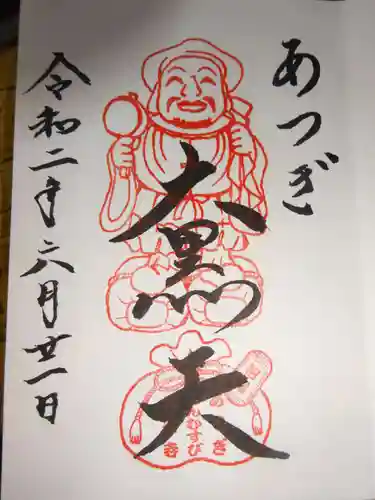 あつぎ
大黒天
令和二年六月廿一日
むすび